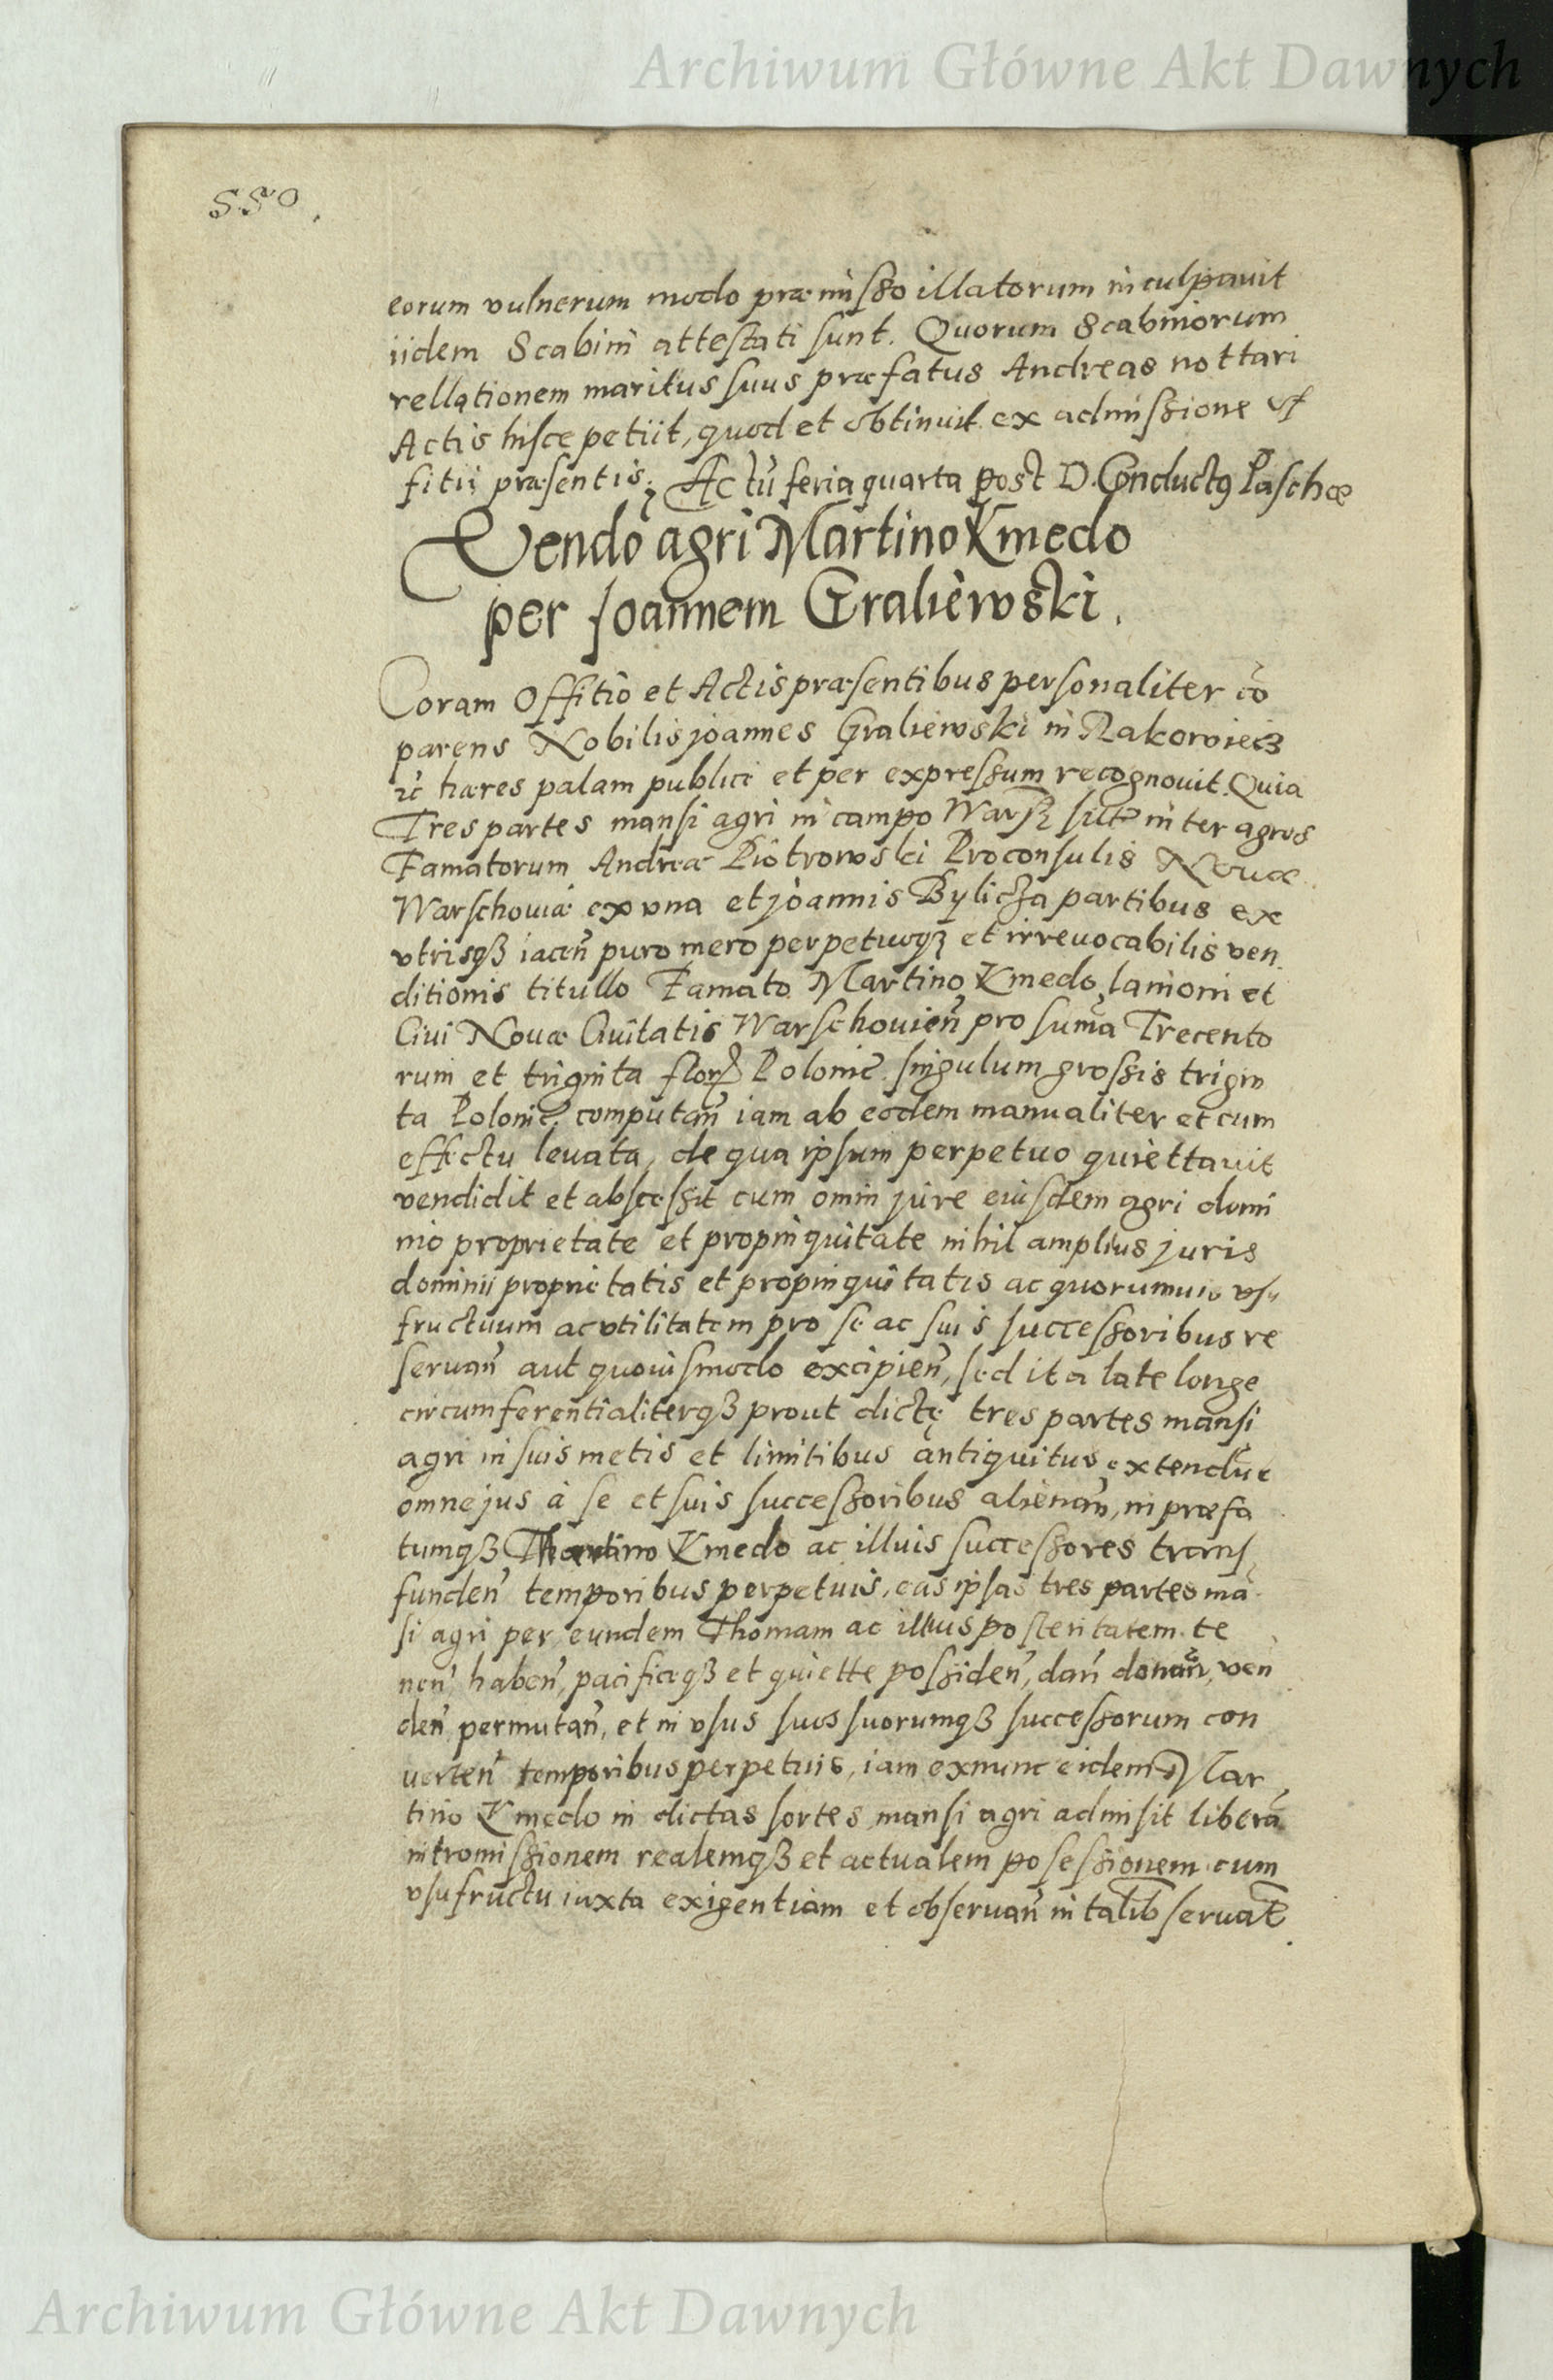 Archiwum Główne Akt Dawnych
550.
eorum vulnerum modo præmisso illatorum inculpavit
iidem Scabini attestati sunt. Quorum Scabinorum
rellationem maritus suus præfatus Andreas nottari
Actis hisce petiit, quod et obtinuit ex admissione of
fitii præsentis; Actū feria quarta post D. Conductꝰ Paschæ
Vendō agri Martino Kmedo
per Joannem Graliewski.
Coram Offitio et Actis præsentibus personaliter cō
parens Nobilis joannes Graliewski in Rakowiecz
hæres palam publice et per expressum recognouit. Quia
Tres partes mansi agri in campo Warsz sitæ inter agros
Famatorum Andreæ Piotrowski Proconsulis Novæ
Warschoviæ ex vna et joannis Bylicza partibus ex
vtrisqꝫ iaceñ puro mero perpetuoqꝫ et irreuocabilis ven
ditionis titullo Famato Martino Kmedo lanioni et
Civi Novæ Civitatis Warschovieñ pro sum̄a Trecento
rum et triginta flor Polonic. singulum grossis trigin
ta Polonic. computañ iam ab eodem manualiter et cum
effectu leuata, de qua ipsum perpetuo quiettavit
vendidit et abscessit cum omni jure eiusdem agri domi
nio proprietate et propinquitate nihil amplius juris
dominii proprietatis et propinquitatis ac quorumvis vsu
fructuum ac vtilitatem pro se ac suis successoribus re
servañ aut quovismodo excipieñ, sed ita late longe
circumferentialiterqꝫ prout dictę tres partes mansi
agri in suis metis et limitibus antiquitus extendūt
omne jus à se et suis successoribus alienañ, in præfa
tumqꝫ Martino Kmedo ac illius successores trans
fundeñ temporibus perpetuis, eas ipsas tres partes mā
si agri per eundem Thomam ac illius posteritatem te
neñ habeñ, pacificeqꝫ et quiette possideñ, dañ donañ, ven
deñ permutañ, et in vsus suos suorumqꝫ successorum con
uerteñ temporibus perpetuis, iam exnunc eidem Mar
tino Kmedo in dictas sortes mansi agri admisit liberā
intromissionem realemqꝫ et actualem posessionem cum
vsufructu iuxta exigentiam et observañ in talib servat.
Archiwum Główne Akt Dawnych